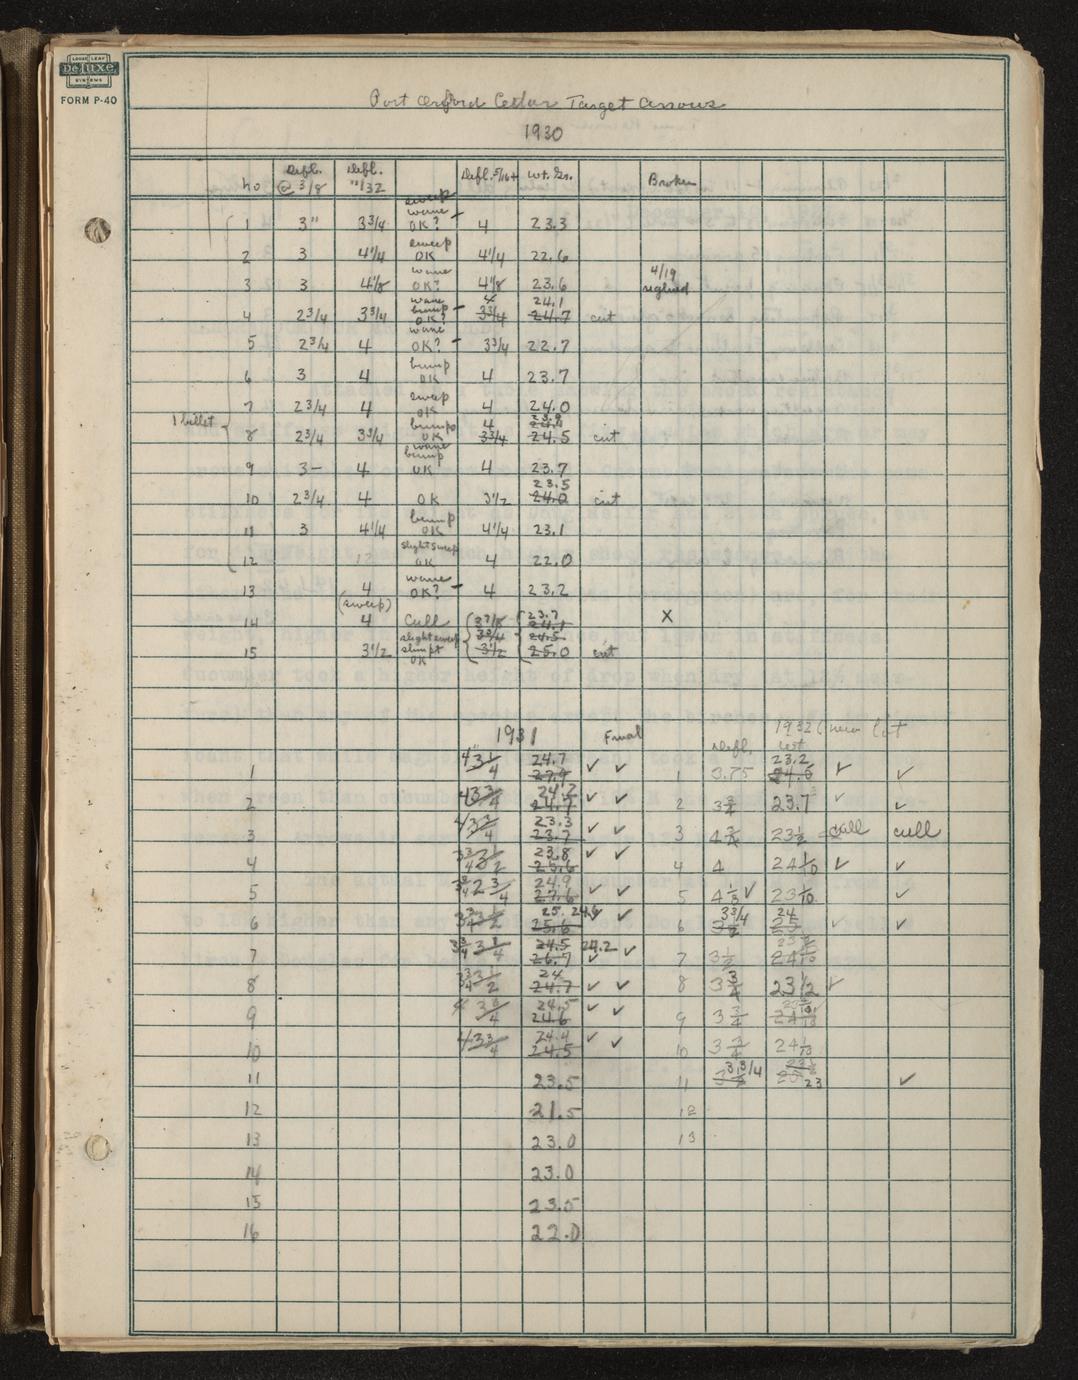 LOOSE LEAF
DeLUXE
SYSTEMS
FORM P-40
Port Orford Cedar Target Arrows
1930
No Defl. @ 3/8 Defl. 11/32 Defl. 5/16+ Wt. Gr. Broken
sweep
wave
1 3" 3 3/4 OK? - 4 23.3
sweep
2 3 4 1/4 OK 4 1/4 22.6
wave 4/19
3 3 4 1/8 OK? 4 1/8 23.6 reglued
wave 4 24.1
bump
4 2 3/4 3 3/4 OK? - 3 3/4 24.7 cut
wave
5 2 3/4 4 OK? - 3 3/4 22.7
bump
6 3 4 OK 4 23.7
sweep
7 2 3/4 4 OK 4 24.0
1 billet
bump 4 23.9
8 2 3/4 3 3/4 OK 3 3/4 24.5 cut
wave
bump
9 3- 4 OK 4 23.7
23.5
10 2 3/4 4 OK 3 1/2 24.0 cut
bump
11 3 4 1/4 OK 4 1/4 23.1
slight sweep
12 12 OK 4 22.0
wave
13 4 OK? - 4 23.2
(sweep)
14 4 Cull 3 7/8 23.7 X
slight sweep 3 3/4 24.1
24.5
15 3 1/2 OK 3 1/2 25.0 cut
1931 Final 1932 (new lot
Defl. wt
1 4" 3 1/4 24.7 27.9 ✓ ✓ 1 3.75 23.2 24.5 ✓ ✓
2 4 3 3/4 24.2 24.7 ✓ ✓ 2 3 3/4 23.7 ✓ ✓
3 4 3 3/4 23.3 23.7 ✓ ✓ 3 4 3/4 23 1/2 cull cull
4 3 3/4 3 1/2 23.8 25.6 ✓ ✓ 4 4 24 1/10 ✓ ✓
5 3 3/4 2 3/4 24.9 27.6 ✓ ✓ 5 4 1/8 ✓ 23 1/10 ✓
6 3 3/4 3 1/2 25. 24.6 25.6 ✓ 6 3 3/4 3 1/2 24 25 ✓ ✓
7 3 3/4 3 1/4 24.5 24.2 26.7 ✓ ✓ 7 3 1/2 24 1/10
8 3 3/4 3 1/2 24 24.7 ✓ ✓ 8 3 3/4 23 1/2 ✓
9 4 3 3/4 24.5 24.6 ✓ ✓ 9 3 3/4
10 4 3 3/4 24.4 24.5 ✓ ✓ 10 3 3/4
11 23.5 11 3 3/4 23 ✓
12 21.5 12
13 23.0 13
14 23.0
15 23.5
16 22.0